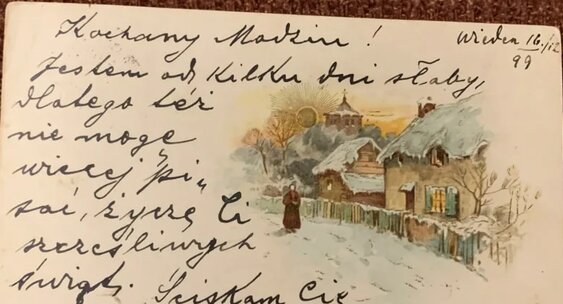 Kochany Madziu!
Wieden 16./12
99
Jestem od kilku dni słaby,
dlatego też
nie mogę
więcej pi„
sać, życzę Ci
szczęśliwych
świąt. Ściskam Cię